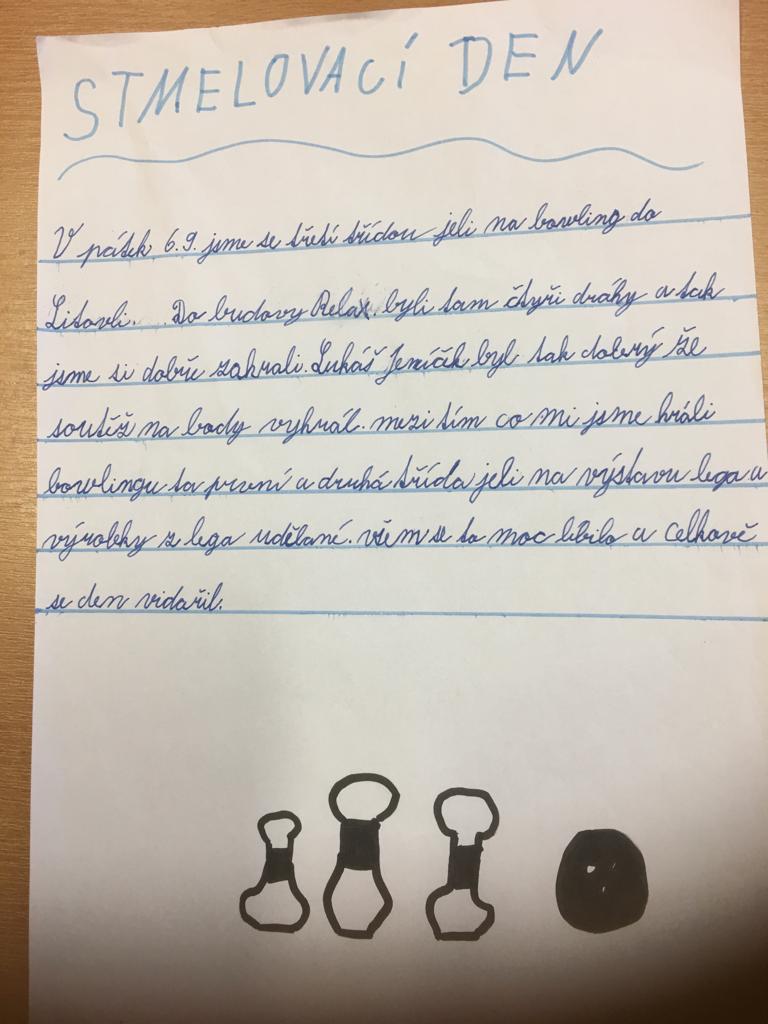 STMELOVACÍ DEN
V pátek 6.9. jsme se třetí třídou jeli na bowling do
Litovli. Do budovy Relax. byli tam čtyři dráhy a tak
jsme si dobře zahrali. Lukáš Jeníčék byl tak dobrý že
soutěž na body vyhrál. mezi tím co mi jsme hráli
bowlingu ta první a druhá třída jeli na výstavu lega a
výrobky z lega udělané. všem se to moc líbilo a celkově
se den vidařil.